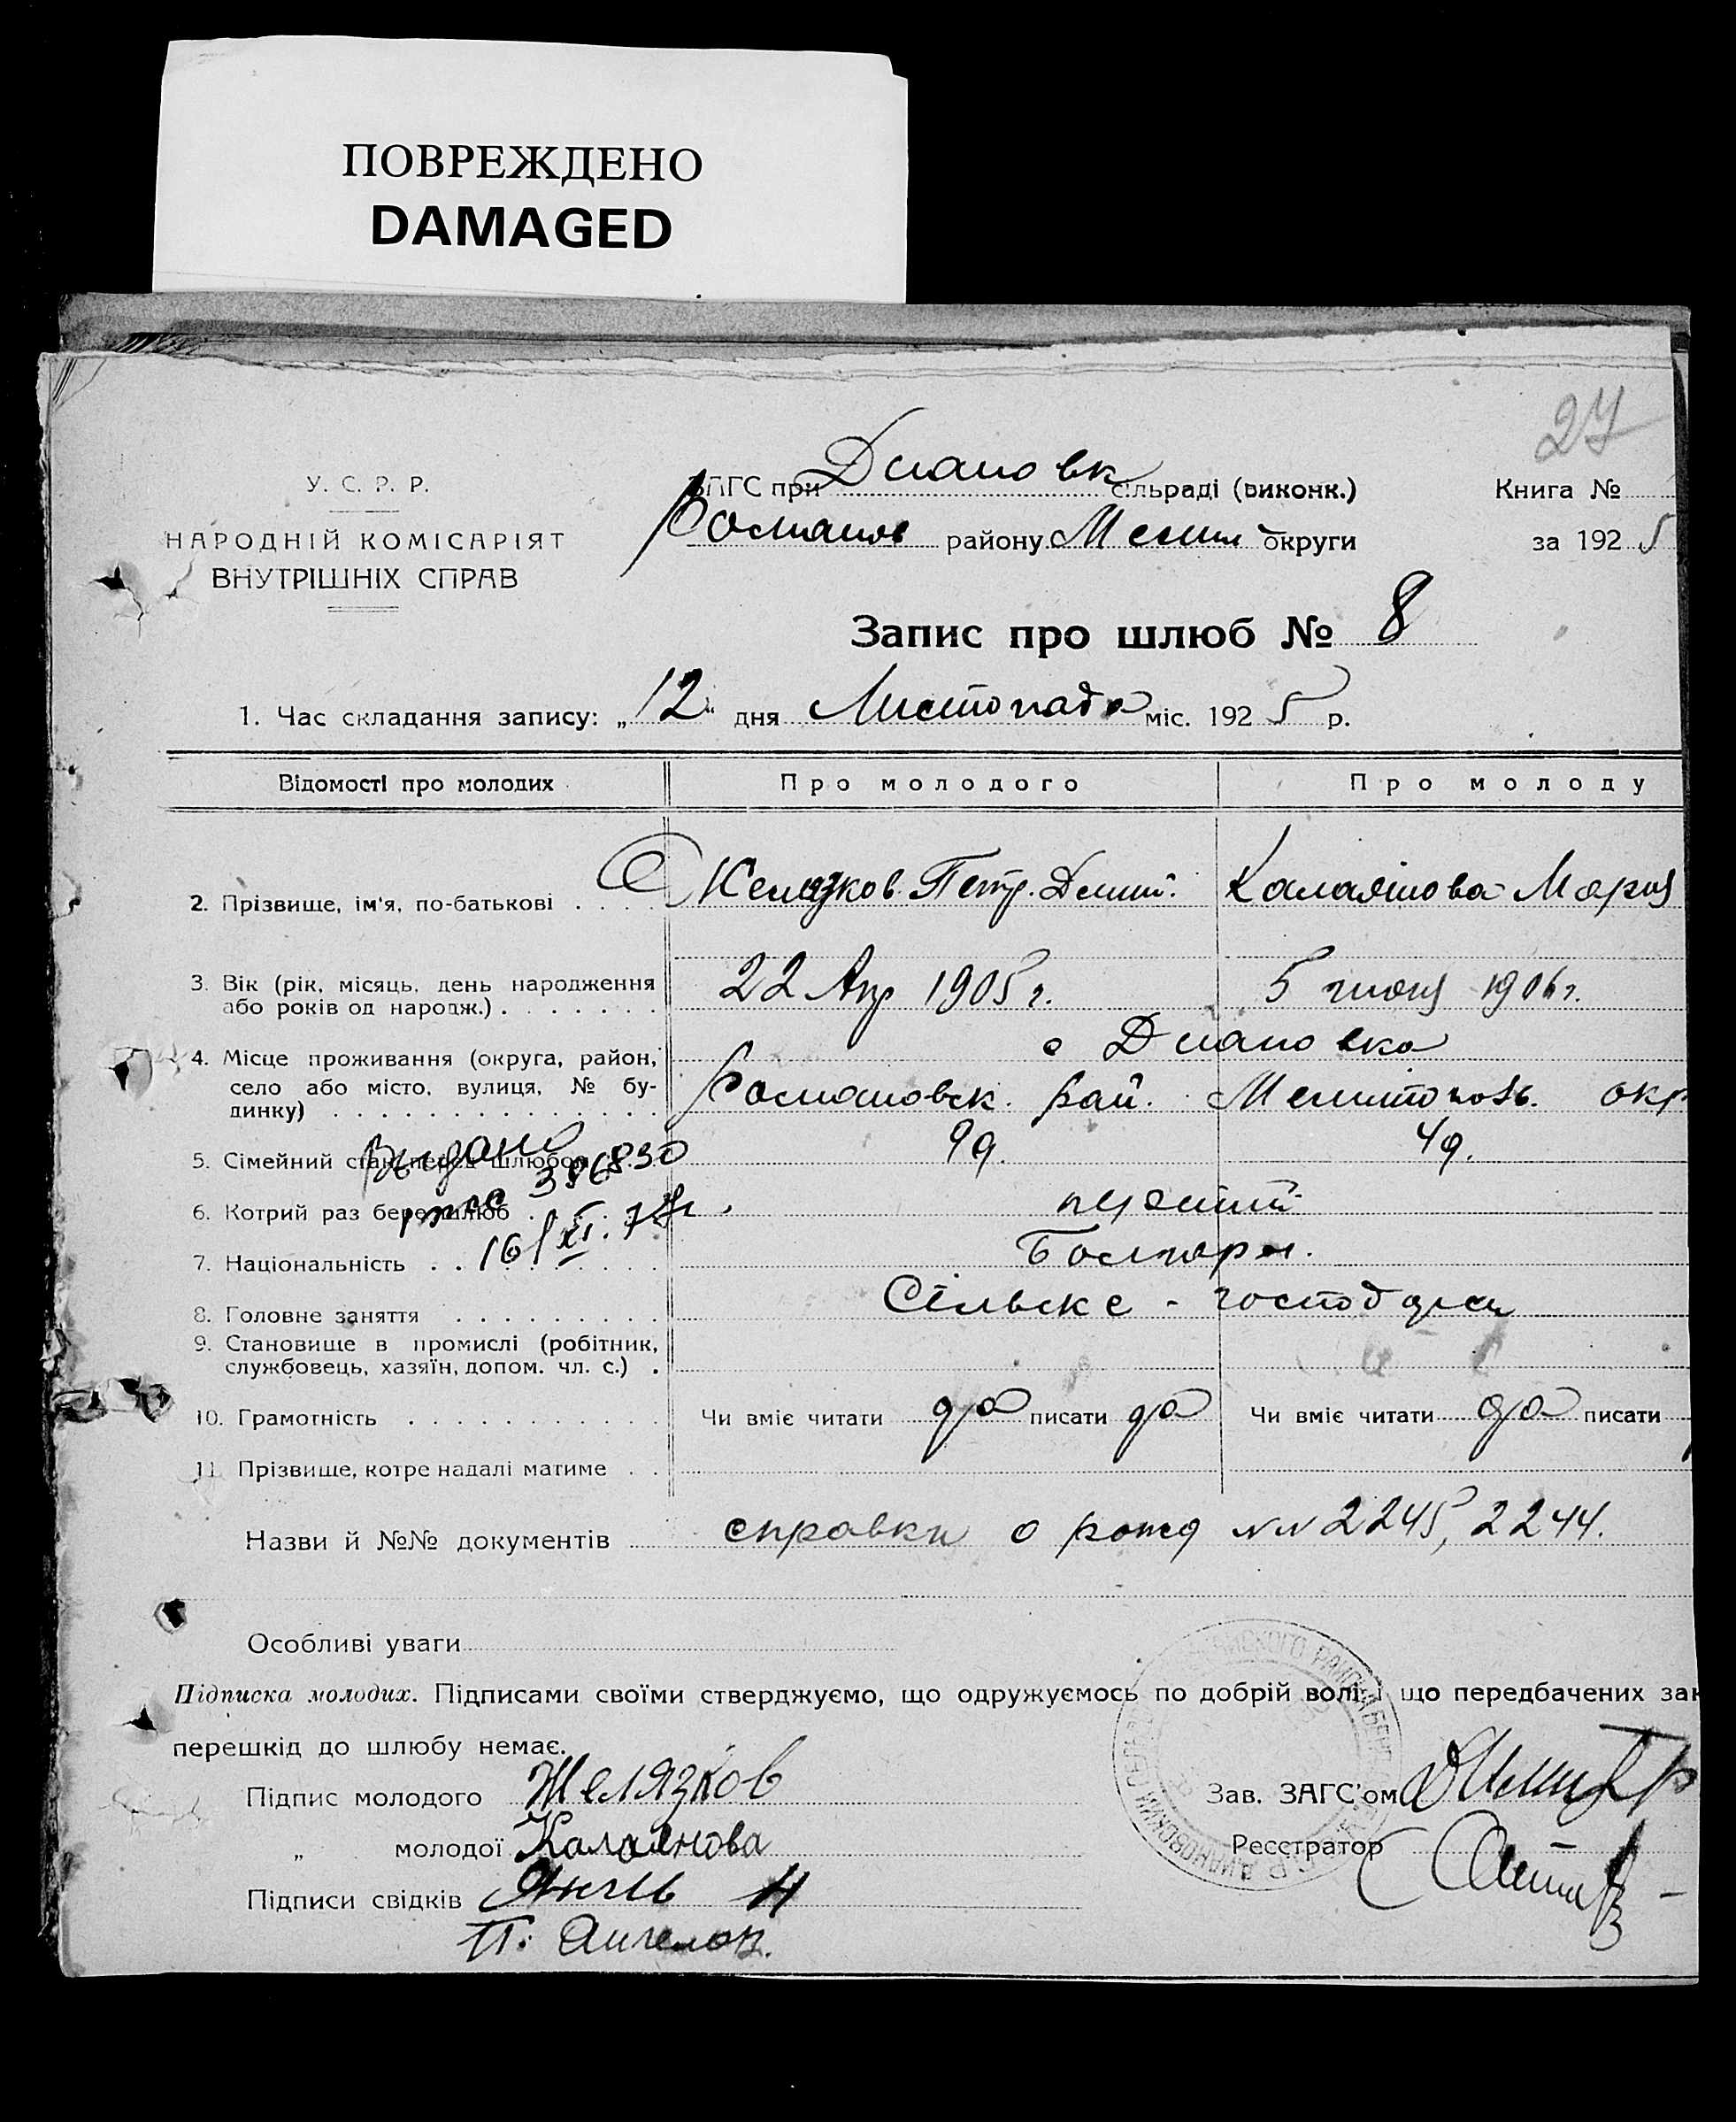 ПОВРЕЖДЕНО
DAMAGED
27
У. С. Р. Р.
НАРОДНІЙ КОМІСАРІЯТ
ВНУТРІШНІХ СПРАВ
ЗАГС при Диановк сільраді (виконк.)
Романов району Мелит округи
Книга №
за 1925
Запис про шлюб № 8
1. Час складання запису: „12“ дня Листопада міс. 1925 р.
Відомості про молодих Про молодого Про молоду
2. Прізвище, ім'я, по-батькові Желязков Петр. Дмит. Калаянова Мария
3. Вік (рік, місяць, день народження або років од народж.) 22 Апр 1905 г. 5 1906 г.
с Диановка
4. Місце проживання (округа, район, село або місто, вулиця, № будинку) Романовск. рай. Мелитополь. окр
5. Сімейний стан перед шлюбом
Выдано
396830
6. Котрий раз бере шлюб
16/XI.
7. Національність Болгары.
8. Головне заняття Сільске - господарси
9. Становище в промислі (робітник, службовець, хазяїн, допом. чл. с.)
10. Грамотність Чи вміє читати да писати да Чи вміє читати да писати
11. Прізвище, котре надалі матиме
Назви й №№ документів справки о рожд NN 2245, 2244.
Особливі уваги
Підписка молодих. Підписами своїми стверджуємо, що одружуємось по добрій волі і що передбачених зак
перешкід до шлюбу немає.
Підпис молодого Желязков
„ молодої Калаянова
Підписи свідків
П. Ангелов.
Зав. ЗАГС'ом
Реєстратор